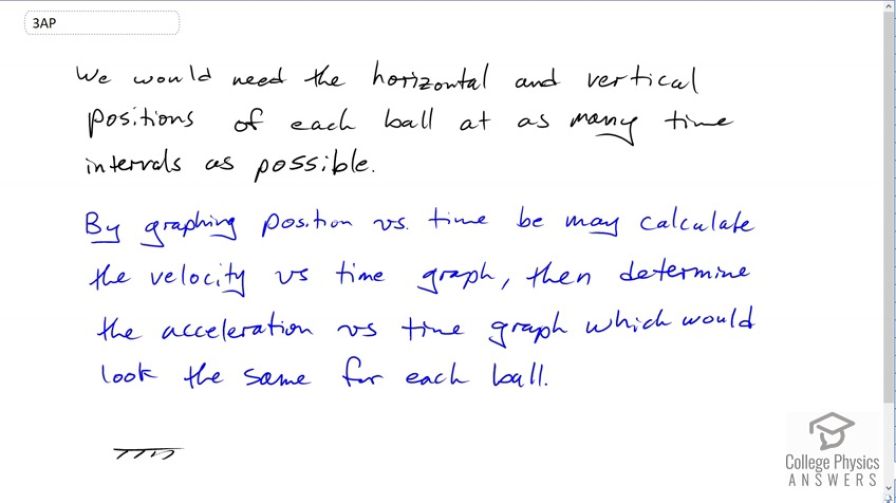 3AP
We would need the horizontal and vertical
positions of each ball at as many time
intervals as possible.
By graphing position vs. time be may calculate
the velocity vs time graph, then determine
the acceleration vs time graph which would
look the same for each ball.
College Physics
ANSWERS